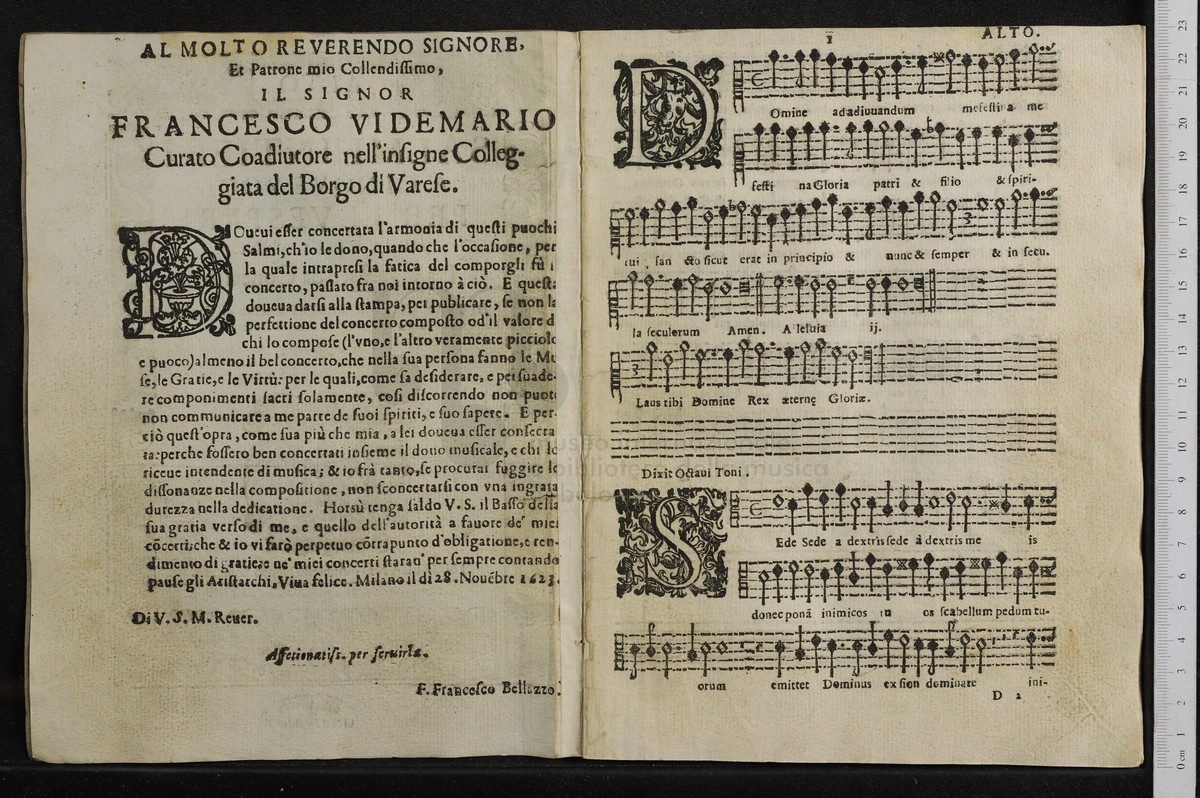 AL MOLTO REVERENDO SIGNORE,
Et Patrone mio Collendiſſimo,
IL SIGNOR
FRANCESCO VIDEMARIO
Curato Coadiutore nell'inſigne Colleg-
giata del Borgo di Vareſe.
DOueui eſſer concertata l'armonia di queſti puochi
Salmi, ch'io le dono, quando che l'occaſione, per
la quale intrapreſi la fatica del comporgli fù i
concerto, paſſato fra noi intorno à ciò. E queſta
doueua darſi alla ſtampa, per publicare, ſe non la
perfettione del concerto compoſto od'il valore d
chi lo compoſe (l'vno, e l'altro veramente picciolo
e puoco) almeno il bel concerto, che nella ſua perſona fanno le Mu
ſe, le Gratie, e le Virtù: per le quali, come ſa deſiderare, e perſuade-
re componimenti ſacri ſolamente, coſi diſcorrendo non puote
non communicare a me parte de ſuoi ſpiriti, e ſuo ſapere. E per-
ciò queſt'opra, come ſua più che mia, a lei doueua eſſer conſecra
ta: perche foſſero ben concertati inſieme il dono muſicale, e chi lo
riceue intendente di muſica; & io frà tanto, ſe procurai fuggire le
diſſonanze nella compoſitione, non ſconcertarſi con vna ingrata
durezza nella dedicatione. Horsù tenga ſaldo V. S. il Baſſo della
ſua gratia verſo di me, e quello dell'autorità a fauore de' miei
cõcerti; che & io vi farò perpetuo cõtrapunto d'obligatione, e ren-
dimento di gratie: e ne' miei concerti ſtaran' per ſempre contando
pauſe gli Ariſtarchi. Viua felice. Milano il dì 28. Nouẽbre 1623.
Di V. S. M. Reuer.
Affetionatiſs. per ſeruirla.
F. Franceſco Bellazzo.
1 ALTO.
DOmine ad adiuuandum me feſtina me
feſti na Gloria patri & filio & ſpiri-
tui ſan cto ſicut erat in principio & nunc & ſemper & in ſecu.
la ſeculorum Amen. Alleluia ij.
Laus tibi Domine Rex æternę Gloriæ.
Dixit Octaui Toni.
SEde Sede a dextris ſede à dextris me is
donec ponã inimicos tu os ſcabellum pedum tu-
orum emittet Dominus ex ſion dominare ini-
D 2
0 cm 1 2 3 4 5 6 7 8 9 10 11 12 13 14 15 16 17 18 19 20 21 22 23